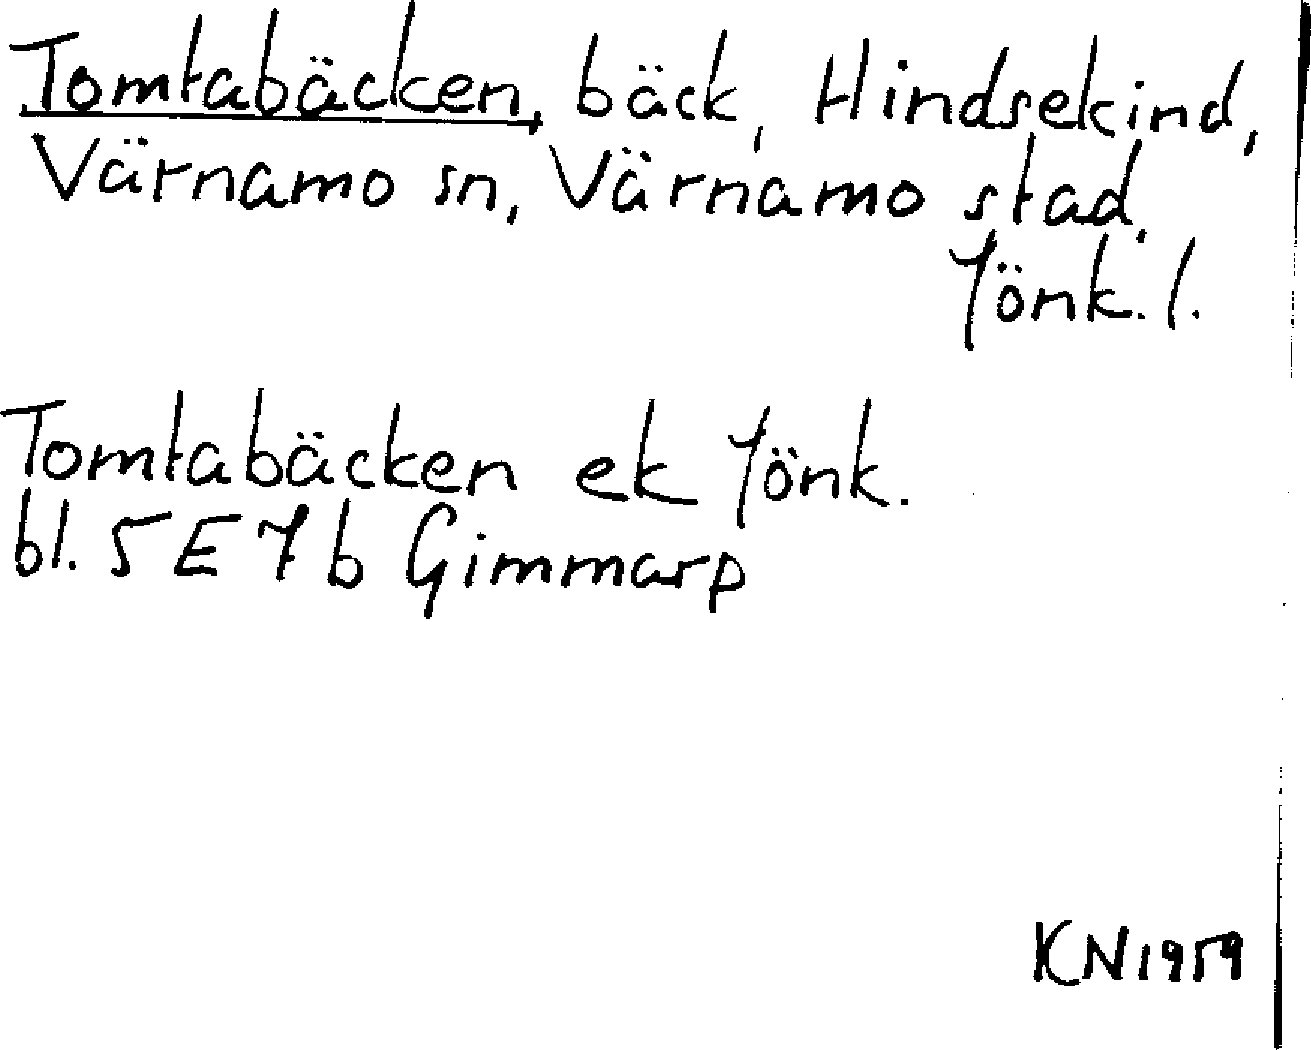 Tomtabäcken, bäck, Hindsekind,
Värnamo sn, Värnamo stad,
Jönk. l.
Tomtabäcken ek Jönk.
bl. 5 E 7 b Gimmarp
KN 1959